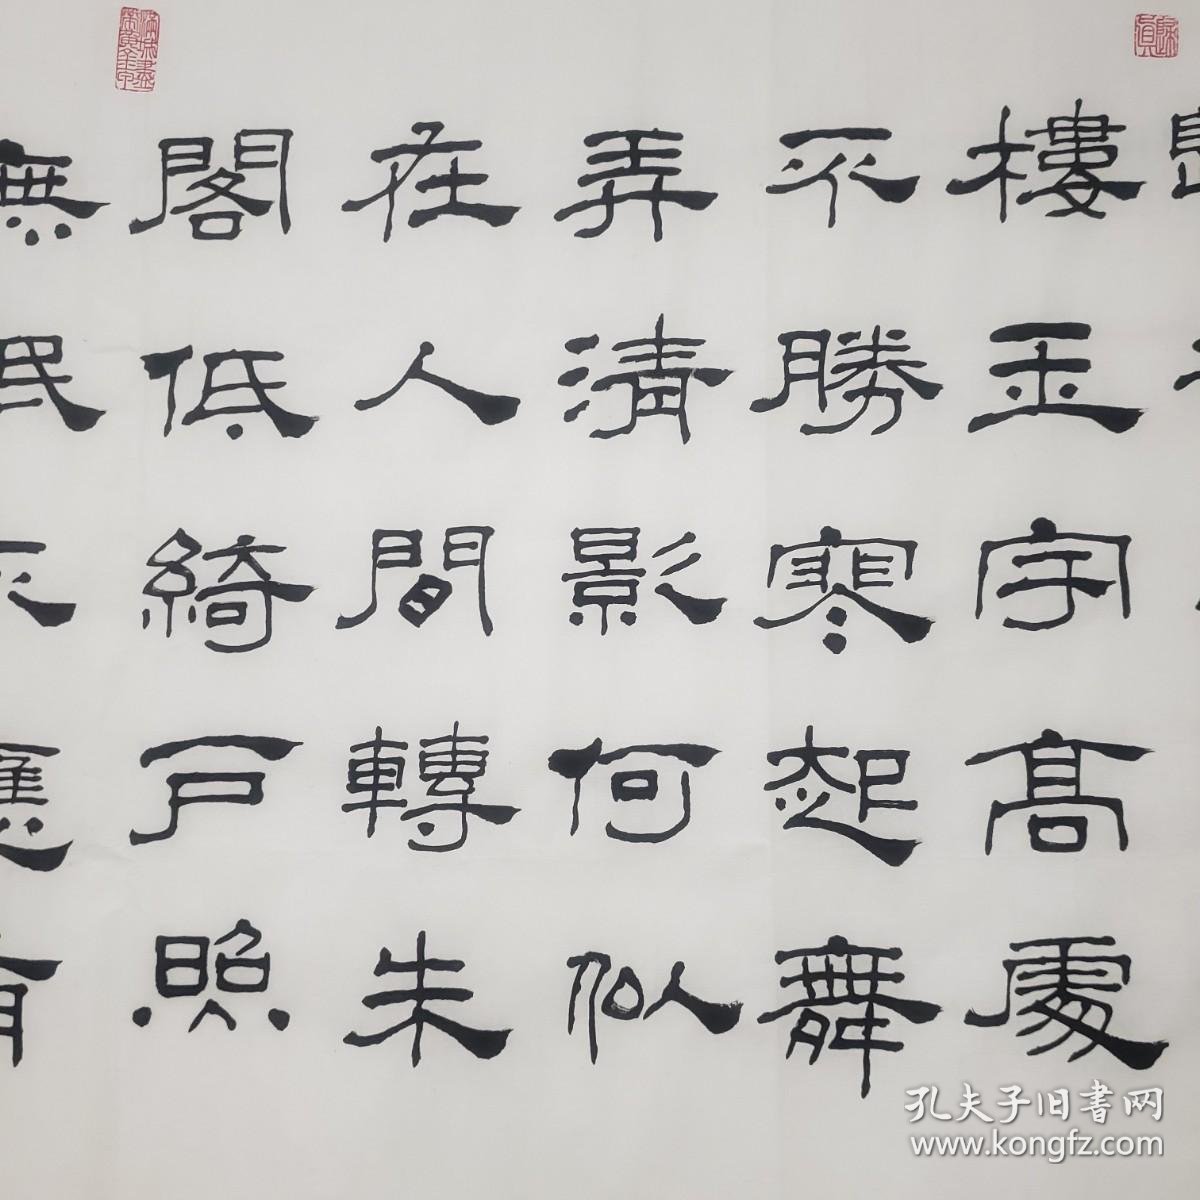 樓玉宇高處
不勝寒起舞
弄清影何似
在人間轉朱
閣低綺戶照
無眠不應有
孔夫子旧書网
www.kongfz.com